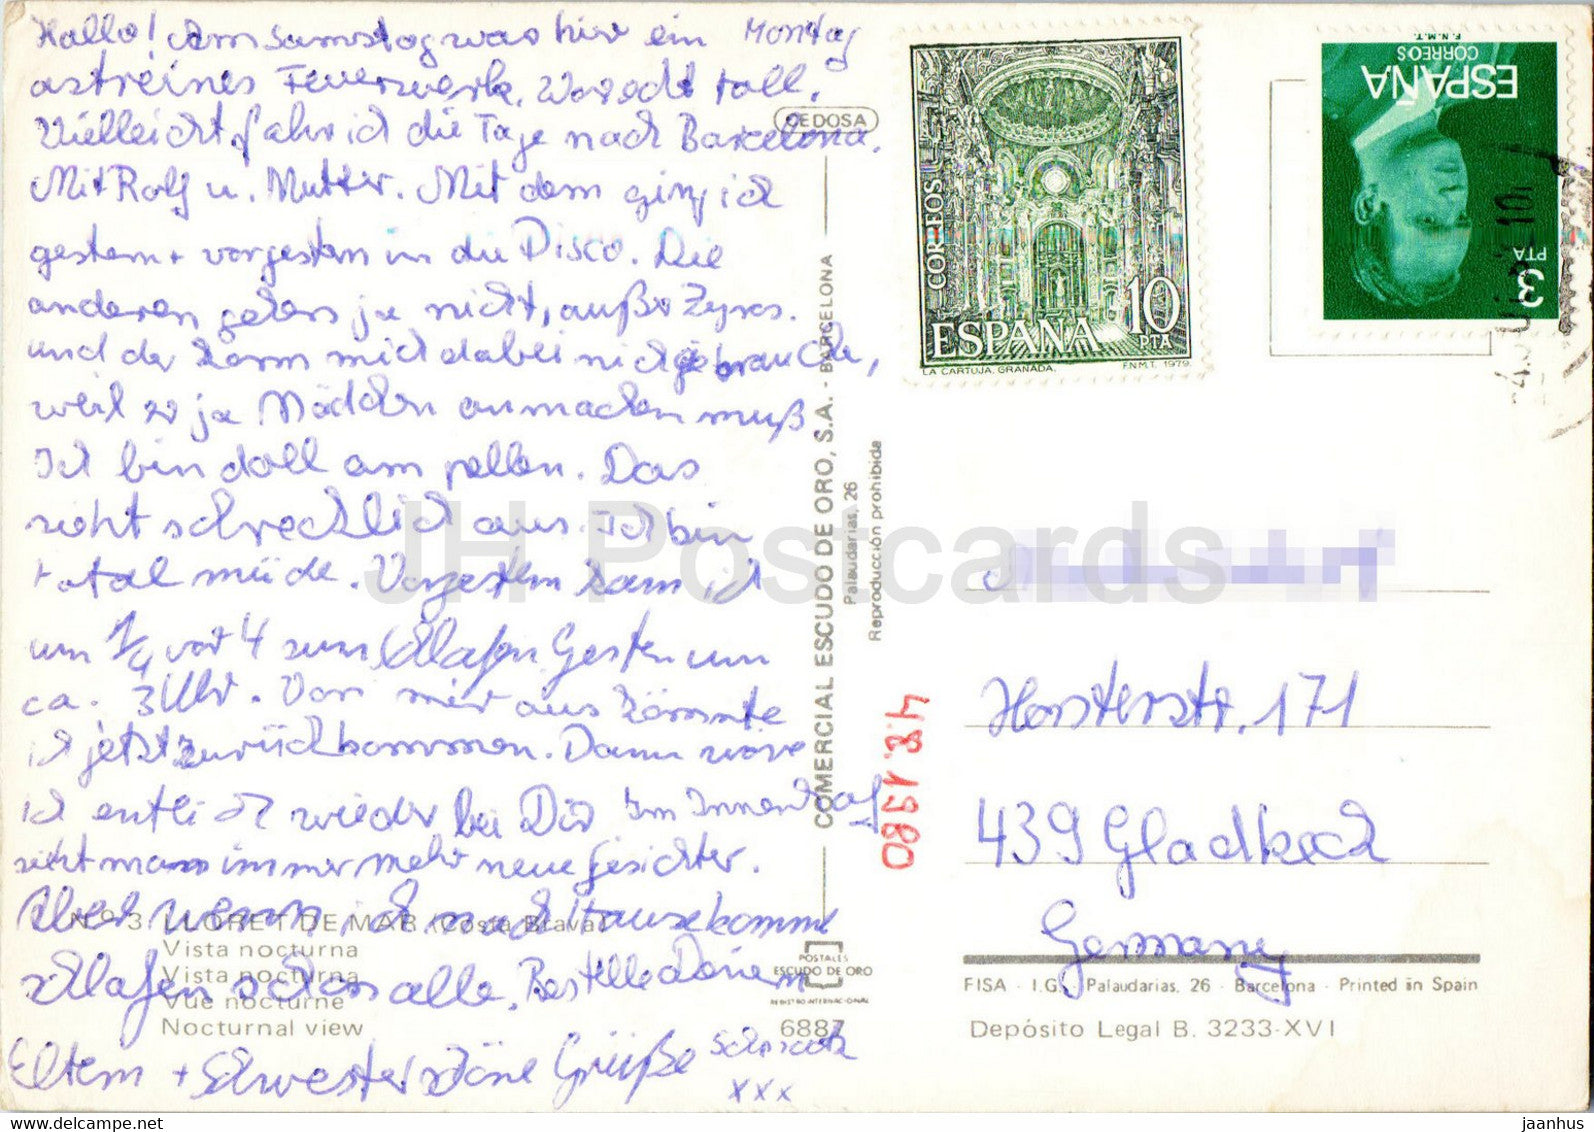 Montag
Hallo! Am Samstag war hier ein
astreines Feuerwerk. War echt toll.
Vielleicht fahr ich die Tage nach Barcelona.
Mit Rolf u. Mutter. Mit dem ging ich
gestern + vorgestern in die Disco. Die
anderen gehen ja nicht, außer Zypros.
und der kann mich dabei nicht gebrauchen,
weil er ja Mädchen anmachen muß.
Ich bin doll am pellen. Das
sieht schrecklich aus. Ich bin
total müde. Vorgestern kam ich
um 1/4 vor 4 zum Schlafen Gestern um
ca. 3 Uhr. Von mir aus könnte
ich jetzt zurückkommen. Dann wäre
ich entlich wieder bei Dir Im Innenhof
sieht man immer mehr neue Gesichter.
Aber wenn ich nach Hause komme
schlafen schon alle. Bestelle Deinen
Eltern + Schwester schöne Grüße
xxx
CEDOSA
COMERCIAL ESCUDO DE ORO, S.A. - BARCELONA
Palaudarias, 26
Reproducción prohibida
Nº 3 LLORET DE MAR (Costa Brava)
Vista nocturna
Vista nocturna
Vue nocturne
Nocturnal view
POSTALES
ESCUDO DE ORO
REGISTRO INTERNACIONAL
6887
CORREOS
ESPAÑA 10 PTA
LA CARTUJA. GRANADA. F.N.M.T. 1979
3 PTA
ESPAÑA
CORREOS
F.N.M.T.
4.8.1980
Horsterstr. 171
439 Gladbeck
Germany
FISA - I.G. Palaudarias, 26 - Barcelona - Printed in Spain
Depósito Legal B. 3233-XVI
JH Postcards
jaanhus
www.delcampe.net